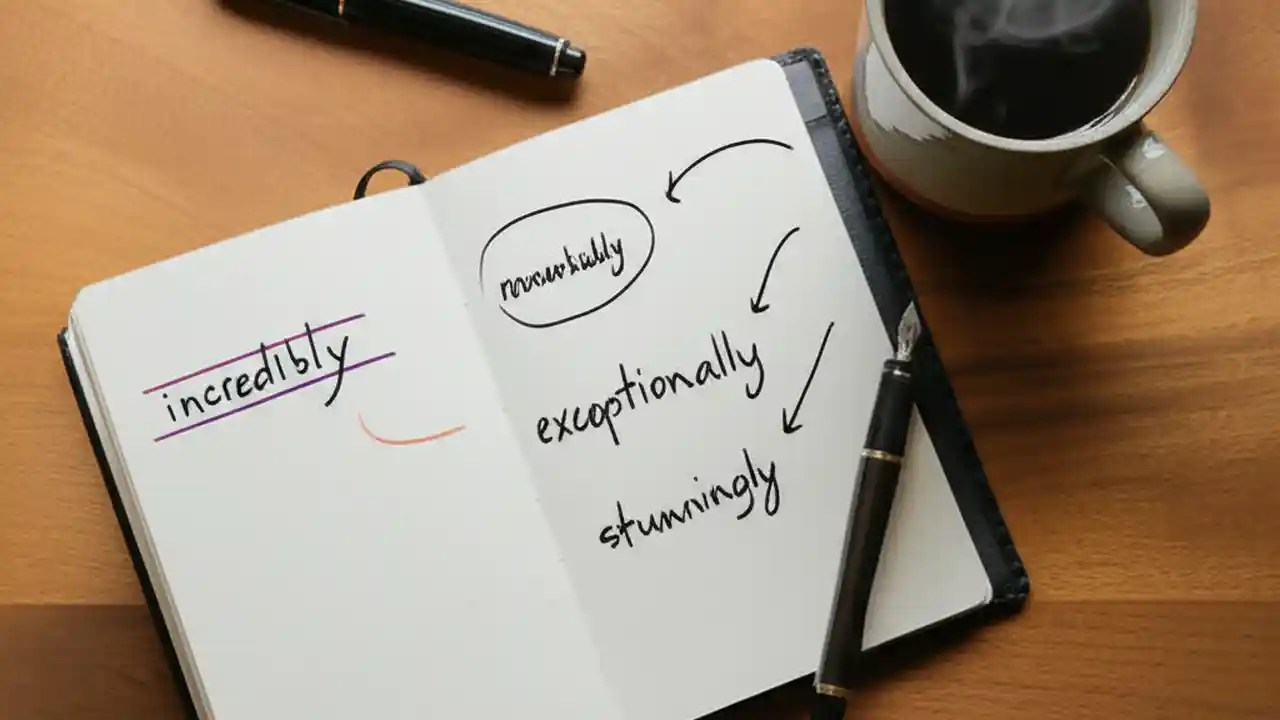 incredibly
exceptionally
stunningly